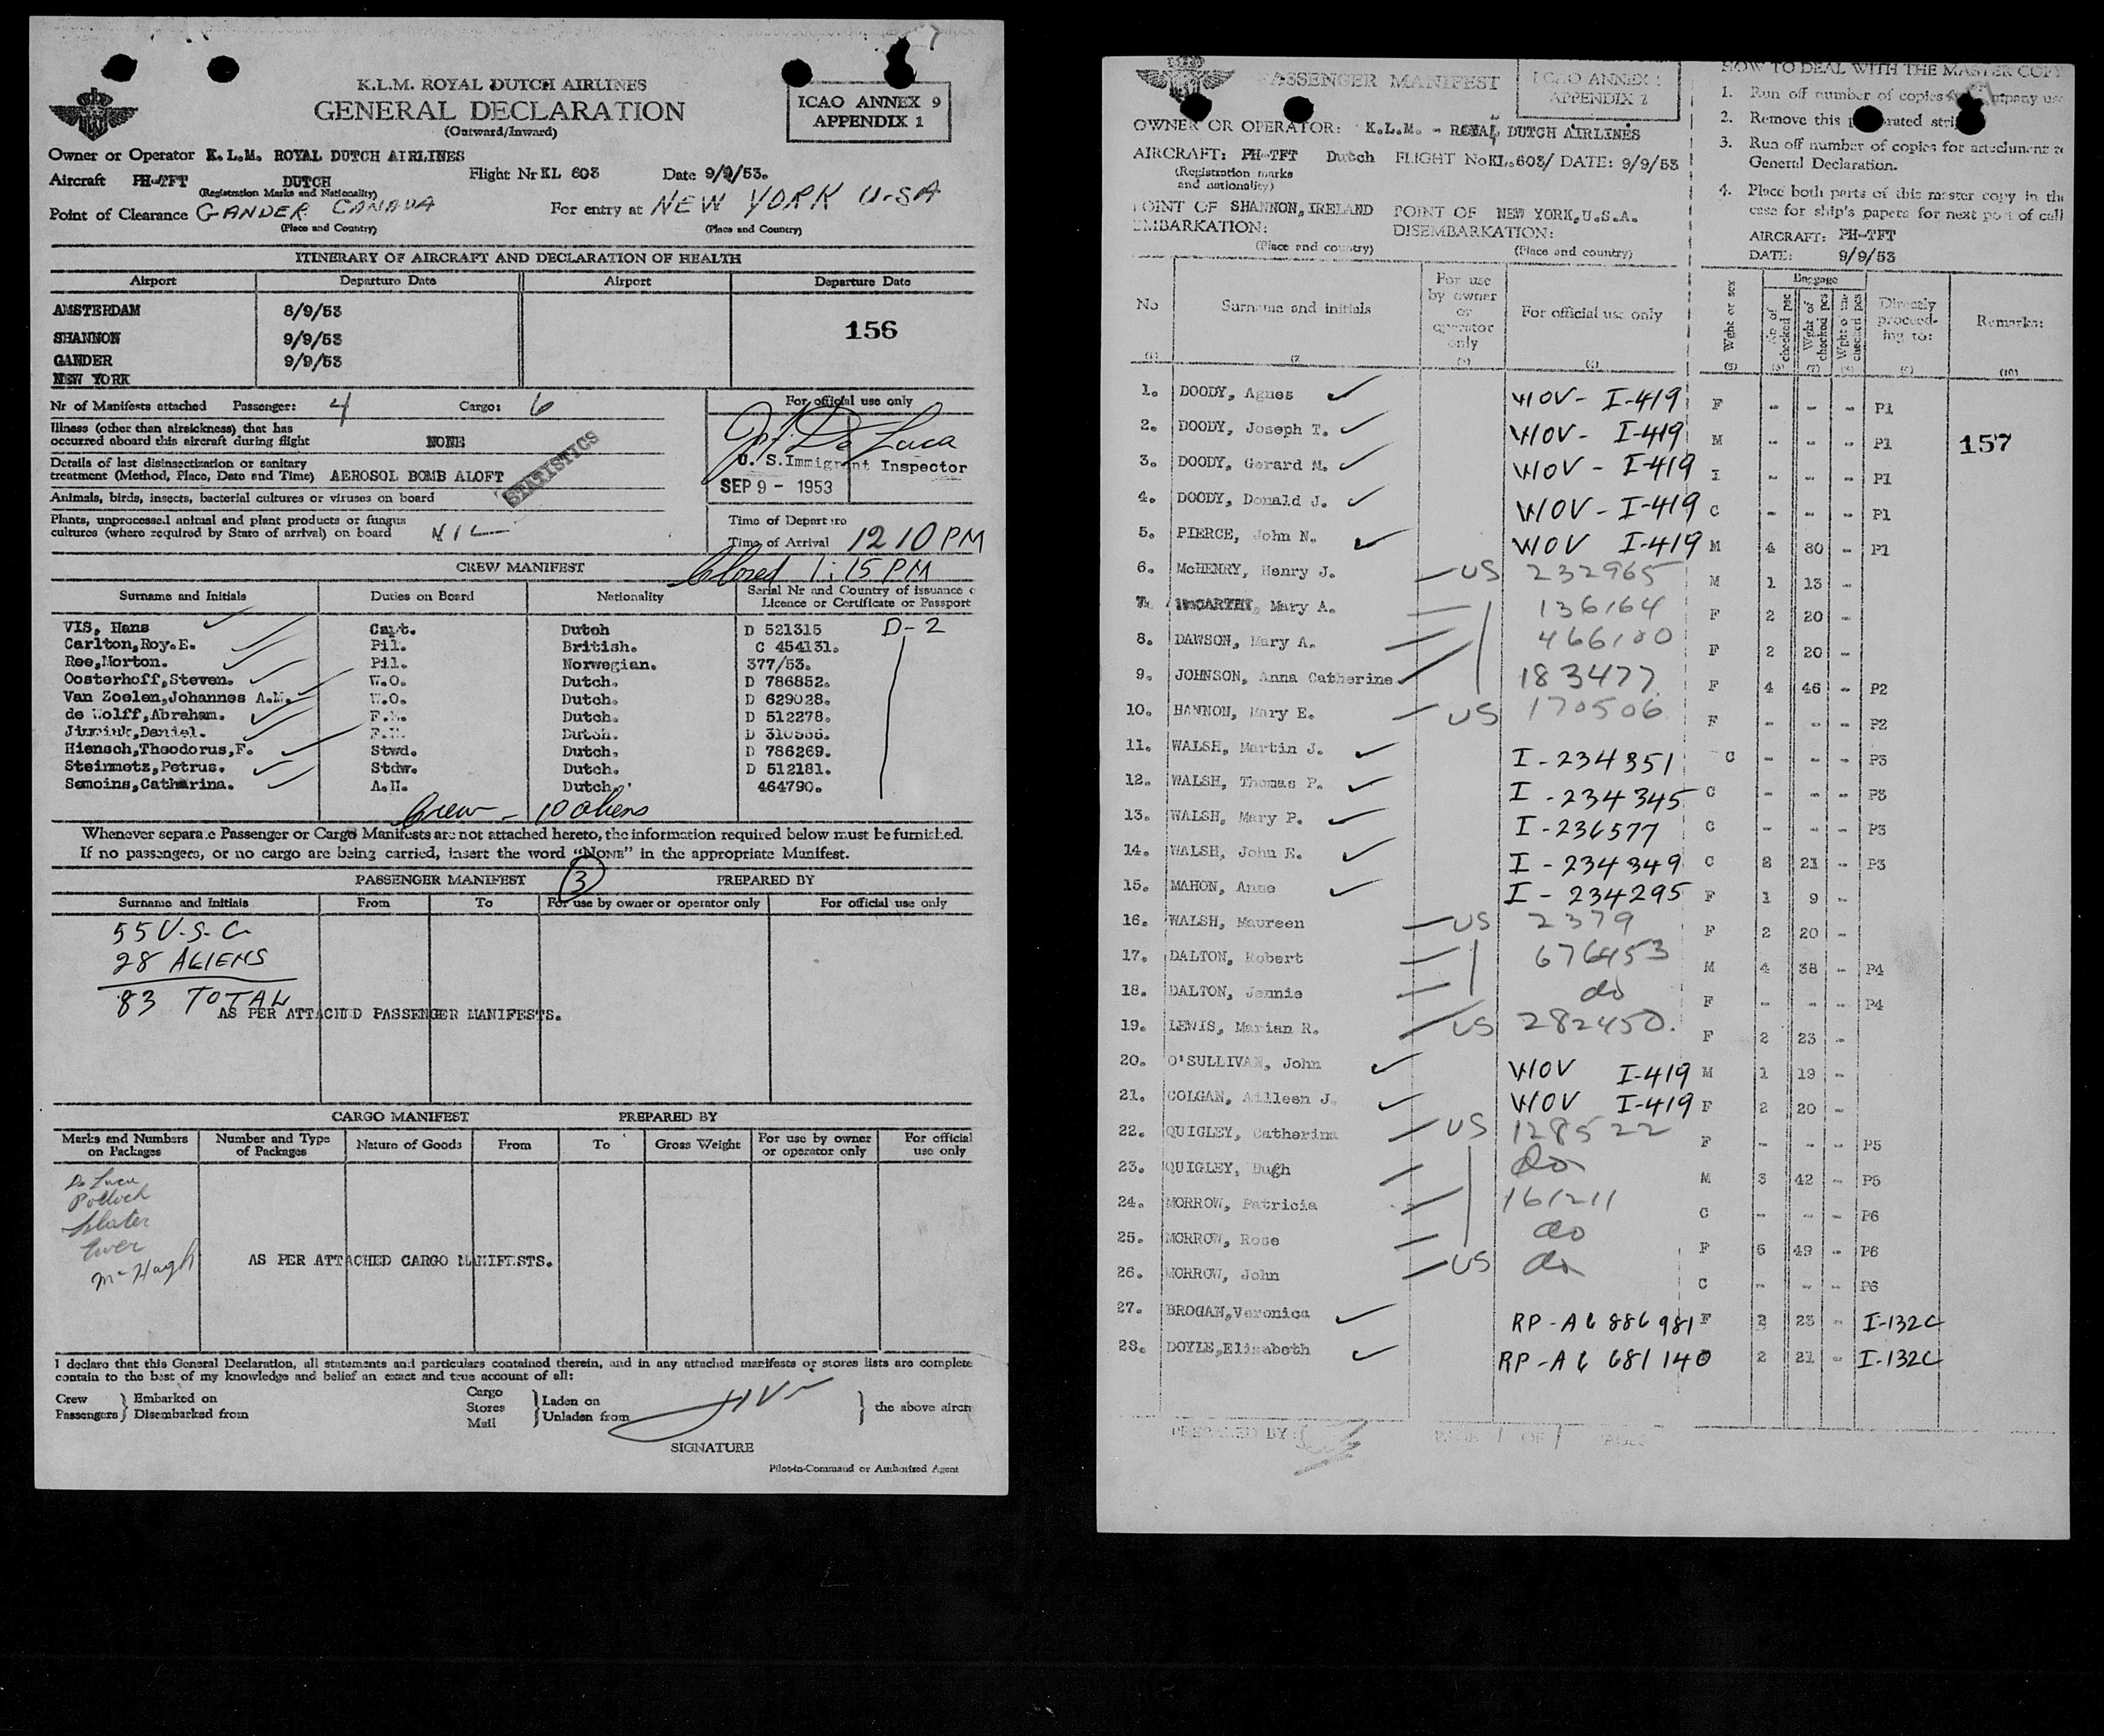 K.L.M. ROYAL DUTCH AIRLINES
GENERAL DECLARATION
(Outward/Inward)
ICAO ANNEX 9
APPENDIX 1
Owner or Operator K.L.M. ROYAL DUTCH AIRLINES
Aircraft PH-TFT DUTCH Flight Nr KL 603 Date 9/9/53.
(Registration Marks and Nationality)
Point of Clearance GANDER CANADA For entry at NEW YORK U.S.A
(Place and Country) (Place and Country)
ITINERARY OF AIRCRAFT AND DECLARATION OF HEALTH
Airport Departure Date Airport Departure Date
AMSTERDAM 8/9/53
156
SHANNON 9/9/53
GANDER 9/9/53
NEW YORK
Nr of Manifests attached Passenger: 4 Cargo: 6 For official use only
Illness (other than airsickness) that has
occurred aboard this aircraft during flight NONE
Details of last disinsectization or sanitary
treatment (Method, Place, Date and Time) AEROSOL BOMB ALOFT
STATISTICS
Jos. F. De Luca
U. S. Immigrant Inspector
SEP 9 - 1953
Animals, birds, insects, bacterial cultures or viruses on board
Plants, unprocessed animal and plant products or fungus
cultures (where required by State of arrival) on board NIL
Time of Departure
Time of Arrival 12 10 PM
Closed 1:15 PM
CREW MANIFEST
Surname and Initials Duties on Board Nationality Serial Nr and Country of issuance o
Licence or Certificate or Passport
VIS, Hans Capt. Dutch D 521315 D-2
Carlton,Roy.E. Pil. British. C 454131.
Ree,Morton. Pil. Norwegian. 377/53.
Oosterhoff,Steven. W.O. Dutch. D 786852.
Van Zoelen,Johannes A.M. W.O. Dutch. D 629028.
de Wolff,Abraham. Dutch. D 512278.
Daniel. Dutch.
Hiensch,Theodorus,F. Stwd. Dutch. D 786269.
Steinmetz,Petrus. Stdw. Dutch. D 512181.
Semoins,Catharina. A.H. Dutch. 464790.
Crew - 10 aliens
Whenever separate Passenger or Cargo Manifests are not attached hereto, the information required below must be furnished.
If no passengers, or no cargo are being carried, insert the word “NONE” in the appropriate Manifest.
PASSENGER MANIFEST 3 PREPARED BY
Surname and Initials From To For use by owner or operator only For official use only
55 U.S.C.
28 ALIENS
83 TOTAL
AS PER ATTACHED PASSENGER MANIFESTS.
CARGO MANIFEST PREPARED BY
Marks and Numbers on Packages Number and Type of Packages Nature of Goods From To Gross Weight For use by owner or operator only For official use only
De Luca
Pollock
Slater
McHugh
AS PER ATTACHED CARGO MANIFESTS.
I declare that this General Declaration, all statements and particulars contained therein, and in any attached manifests or stores lists are complete
contain to the best of my knowledge and belief an exact and true account of all:
Crew Passengers } Embarked on Disembarked from Cargo Stores Mail } Laden on Unladen from } the above aircra
SIGNATURE
Pilot-in-Command or Authorized Agent
PASSENGER MANIFEST
ICAO ANNEX
APPENDIX 2
OWNER OR OPERATOR: K.L.M. - ROYAL DUTCH AIRLINES
AIRCRAFT: PH-TFT Dutch FLIGHT No KL.603/ DATE: 9/9/53
(Registration marks
and nationality)
POINT OF EMBARKATION: SHANNON, IRELAND POINT OF DISEMBARKATION: NEW YORK,U.S.A.
(Place and country) (Place and country)
HOW TO DEAL WITH THE MASTER COPY
1. Run off number of copies company use
2. Remove this perforated strip
3. Run off number of copies for attachment
General Declaration.
4. Place both parts of this master copy in the
case for ship's papers for next port of call
AIRCRAFT: PH-TFT
DATE: 9/9/53
No Surname and initials For use by owner or operator only For official use only Wght or sex Baggage No of checked pce Wght of checked pes Directly proceeding to: Remarks:
1. DOODY, Agnes WOV - I-419 F - - - P1
2. DOODY, Joseph T. WOV - I-419 M - - - P1 157
3. DOODY, Gerard M. WOV - I-419 I - - - P1
4. DOODY, Donald J. WOV - I-419 C - - - P1
5. PIERCE, John N. WOV I-419 M 4 80 - P1
6. McHENRY, Henry J. US 232965 M 1 13 -
7. McCARTHY, Mary A. 136164 F 2 20 -
8. DAWSON, Mary A. 466100 F 2 20 -
9. JOHNSON, Anna Catherine 183477 F 4 46 - P2
10. HANNON, Mary E. US 170506 F - - - P2
11. WALSH, Martin J. I-234351 C - - - P3
12. WALSH, Thomas P. I-234345 C - - - P3
13. WALSH, Mary P. I-236577 C - - - P3
14. WALSH, John E. I-234349 C 2 21 - P3
15. MAHON, Anne I-234295 F 1 9 -
16. WALSH, Maureen US 2379 F 2 20 -
17. DALTON, Robert 676453 M 4 38 - P4
18. DALTON, Jennie do F - - - P4
19. LEWIS, Marian R. US 282450. F 2 23 -
20. O'SULLIVAN, John WOV I-419 M 1 19 -
21. COLGAN, Ailleen J. WOV I-419 F 2 20 -
22. QUIGLEY, Catherina US 128522 F - - - P5
23. QUIGLEY, Hugh do M 3 42 - P5
24. MORROW, Patricia 161211 C - - - P6
25. MORROW, Rose do F 5 49 - P6
26. MORROW, John US do C - - - P6
27. BROGAN,Veronica RP-A6 886 981 F 2 23 - I-132C
28. DOYLE,Elisabeth RP-A6 681 140 2 21 - I-132C
PREPARED BY: PAGE 1 OF 1 PAGES